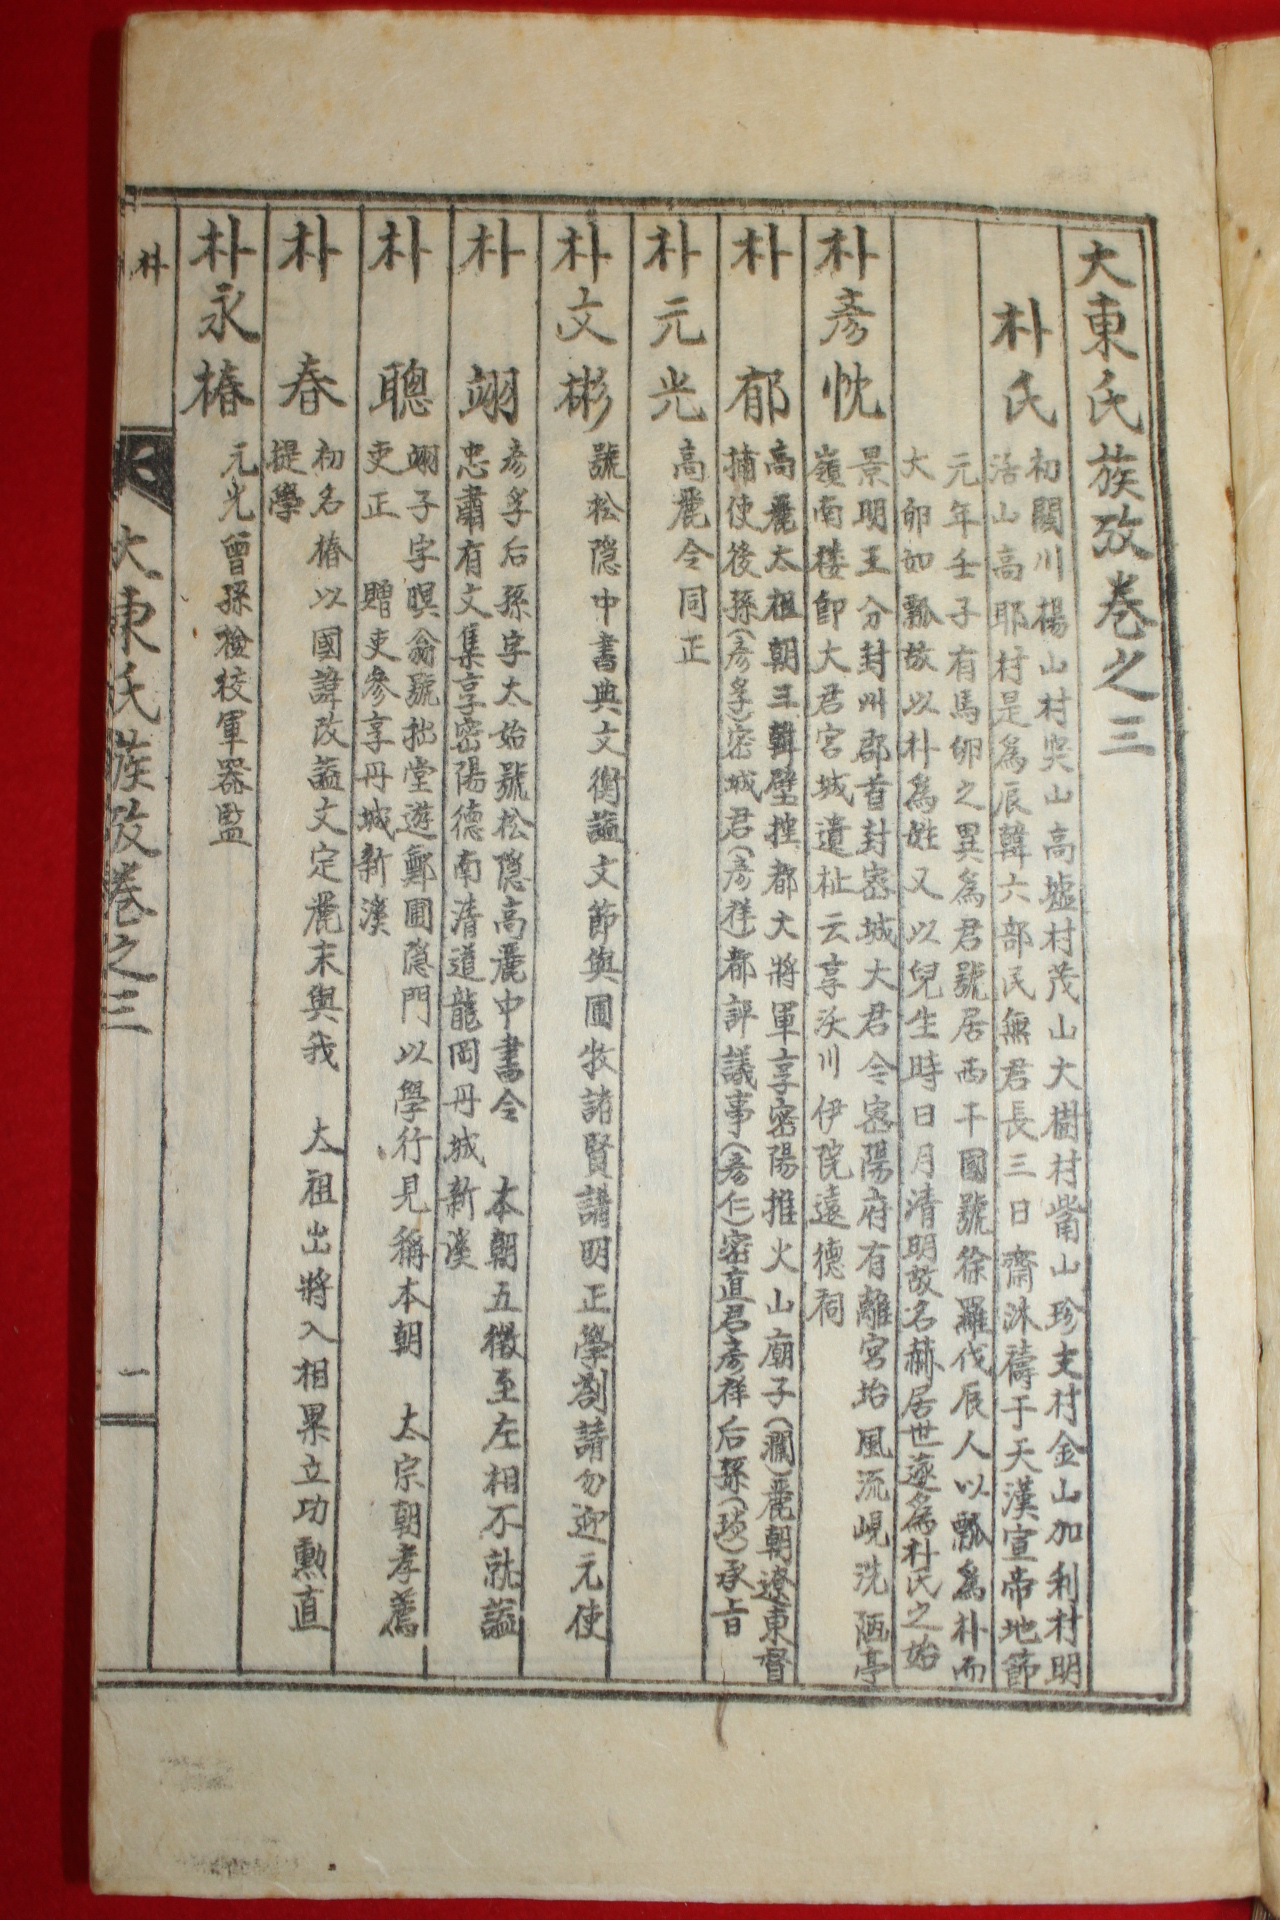 大東氏族攷卷之三
朴氏
初閼川楊山村突山高墟村茂山大樹村觜山珍支村金山加利村明
活山高耶村是爲辰韓六部民無君長三日齋沐禱于天漢宣帝地節
元年壬子有馬卵之異爲君號居西干國號徐羅伐辰人以瓢爲朴而
大卵如瓢故以朴爲姓又以兒生時日月清明故名赫居世遂爲朴氏之始
朴彥忱
景明王分封州郡首封密城大君今密陽府有離宮坮風流峴洗陋亭
嶺南樓卽大君宮城遺址云享沃川伊院遠德祠
朴郁
高麗太祖朝三韓壁控都大將軍享密陽推火山廟子(瀾)麗朝遼東督
捕使後孫(彥孚)密城君(彥祥)都評議事(彥仁)密直君彥祥后孫()承旨
朴元光
高麗令同正
朴文彬
號松隱中書典文衡謚文節與圃牧諸賢講明正學劄請勿迎元使
朴翊
彥孚后孫字太始號松隱高麗中書令 本朝五徵至左相不就謚
忠肅有文集享密陽德南清道龍岡丹城新溪
朴聰
翊子字瞑翁號拙堂遊鄭圃隱門以學行見稱本朝 太宗朝孝薦
吏正 贈吏參享丹城新溪
朴春
初名椿以國諱改謚文定麗末與我 太祖出將入相累立功勳直
提學
朴永椿
元光曾孫檢校軍器監
朴
大東氏族攷卷之三
一